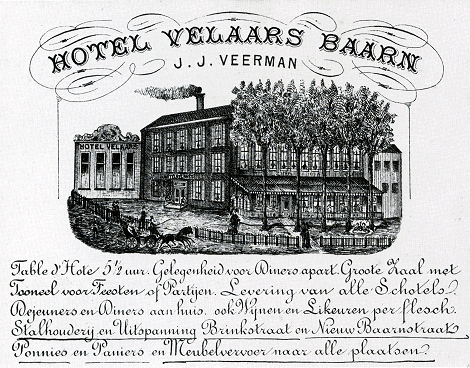 HOTEL VELAARS BAARN
J. J. VEERMAN
HOTEL VELAARS
Table d'Hote 5½ uur. Gelegenheid voor Diners apart. Groote Zaal met
Tooneel voor Feesten of Partijen. Levering van alle Schotels.
Dejeuners en Diners aan huis. ook Wynen en Likeuren per flesch.
Stalhouderij en Uitspanning Brinkstraat en Nieuw Baarnstraat
Ponnies en Paniers en Meubelvervoer naar alle plaatsen.